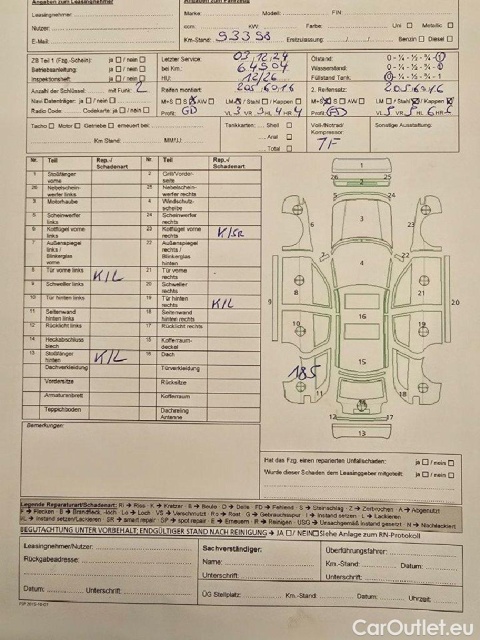 Angaben zum Leasingnehmer
Leasingnehmer:
Nutzer:
E-Mail:
Marke: Modell: FIN
ccm: KW: Farbe: Uni Metallic
Km.-Stand: 93393 Erstzulassung: Benzin Diesel
ZB Teil 1 (Fzg.-Schein): ja / nein
Betriebsanleitung: ja / nein
Inspektionsheft: ja / nein
Anzahl der Schlüssel: mit Funk: 2
Navi Datenträger: ja / nein
Radio Code: Codekarte: ja / nein
Letzter Service: 03.12.24
bei Km.: 64504
HU: 12/26
Reifen montiert: 205.60.16
M+S S AW LM / Stahl / Kappen
Profil:
Ölstand: 0 - ¼ - ½ - ¾ - 1
Wasserstand: 0 - ¼ - ½ - ¾ - 1
Füllstand Tank: 0 - ¼ - ½ - ¾ - 1
2. Reifensatz: 205.60.16
M+S S AW LM / Stahl / Kappen
Profil:
Tacho Motor Getriebe erneuert bei
Km Stand: MM/JJ:
Tankkarten: Shell
Aral
Total
Voll-/Notrad/
Kompressor:
Sonstige Ausstattung:
Nr. Teil Rep.-/ Schadenart Nr. Teil Rep.-/ Schadenart
1 Stoßfänger vorne 2 Grill/Vorderseite
26 Nebelscheinwerfer links 25 Nebelscheinwerfer rechts
3 Motorhaube 4 Windschutzscheibe
5 Scheinwerfer links 24 Scheinwerfer rechts
6 Kotflügel vorne links 23 Kotflügel vorne rechts K/SR
7 Außenspiegel links / Blinkerglas vorne 22 Außenspiegel rechts / Blinkerglas hinten
8 Tür vorne links K/L 21 Tür vorne rechts
9 Schweller links 20 Schweller rechts
10 Tür hinten links 19 Tür hinten rechts K/L
11 Seitenwand hinten links 18 Seitenwand hinten rechts
12 Rücklicht links 17 Rücklicht rechts
14 Heckabschluss blech 15 Kofferraumdeckel
13 Stoßfänger hinten K/L 16 Dach
Dachverkleidung Türverkleidung
Vordersitze Rücksitze
Armaturenbrett Kofferraum
Teppichboden Dachreling Antenne
185
Bemerkungen:
Hat das Fzg. einen reparierten Unfallschaden: ja / nein
Wurde dieser Schaden dem Leasinggeber mitgeteilt: ja / nein
Legende Reparaturart/Schadenart: Ri → Riss K → Kratzer B → Beule D → Delle FD → Fehlend S → Steinschlag Z → Zerbrochen A → Abgenutzt
F → Flecken B → Brandfleck, -loch Lo → Loch VS → Verschmutzt Ro → Rost G → Gebrauchsspur I → Instand setzen L → Lackieren
I/L → instand setzen/Lackieren SR → smart repair SP → spot repair E → Erneuern R → Reinigen USG → Unsachgemäß instand gesetzt N → Nachlackiert
BEGUTACHTUNG UNTER VORBEHALT; ENDGÜLTIGER STAND NACH REINIGUNG → JA / NEIN Siehe Anlage zum RN-Protokoll
Leasingnehmer/Nutzer:
Rückgabeadresse:
Datum: Unterschrift:
Sachverständiger:
Name:
Unterschrift:
ÜG Stellplatz: Km.-Stand:
Überführungsfahrer:
Km.-Stand: Datum:
Unterschrift:
Datum: Uhrzeit:
CarOutlet.eu